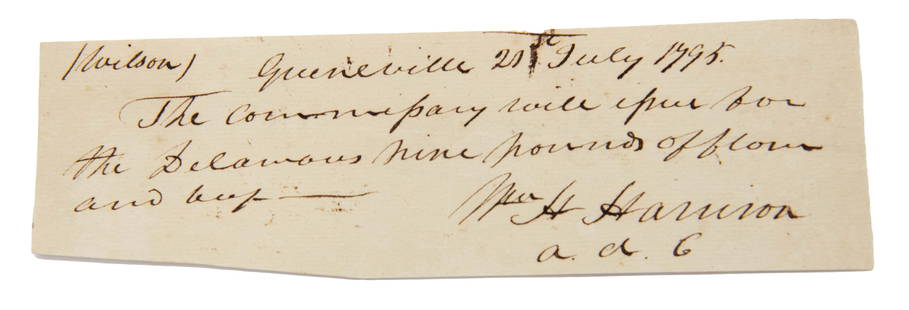 (Wilson) Greeneville 21st July 1795.
The commissary will issue for
the Delawares nine pounds of flour
and beef —
Wm H Harrison
a. d. C